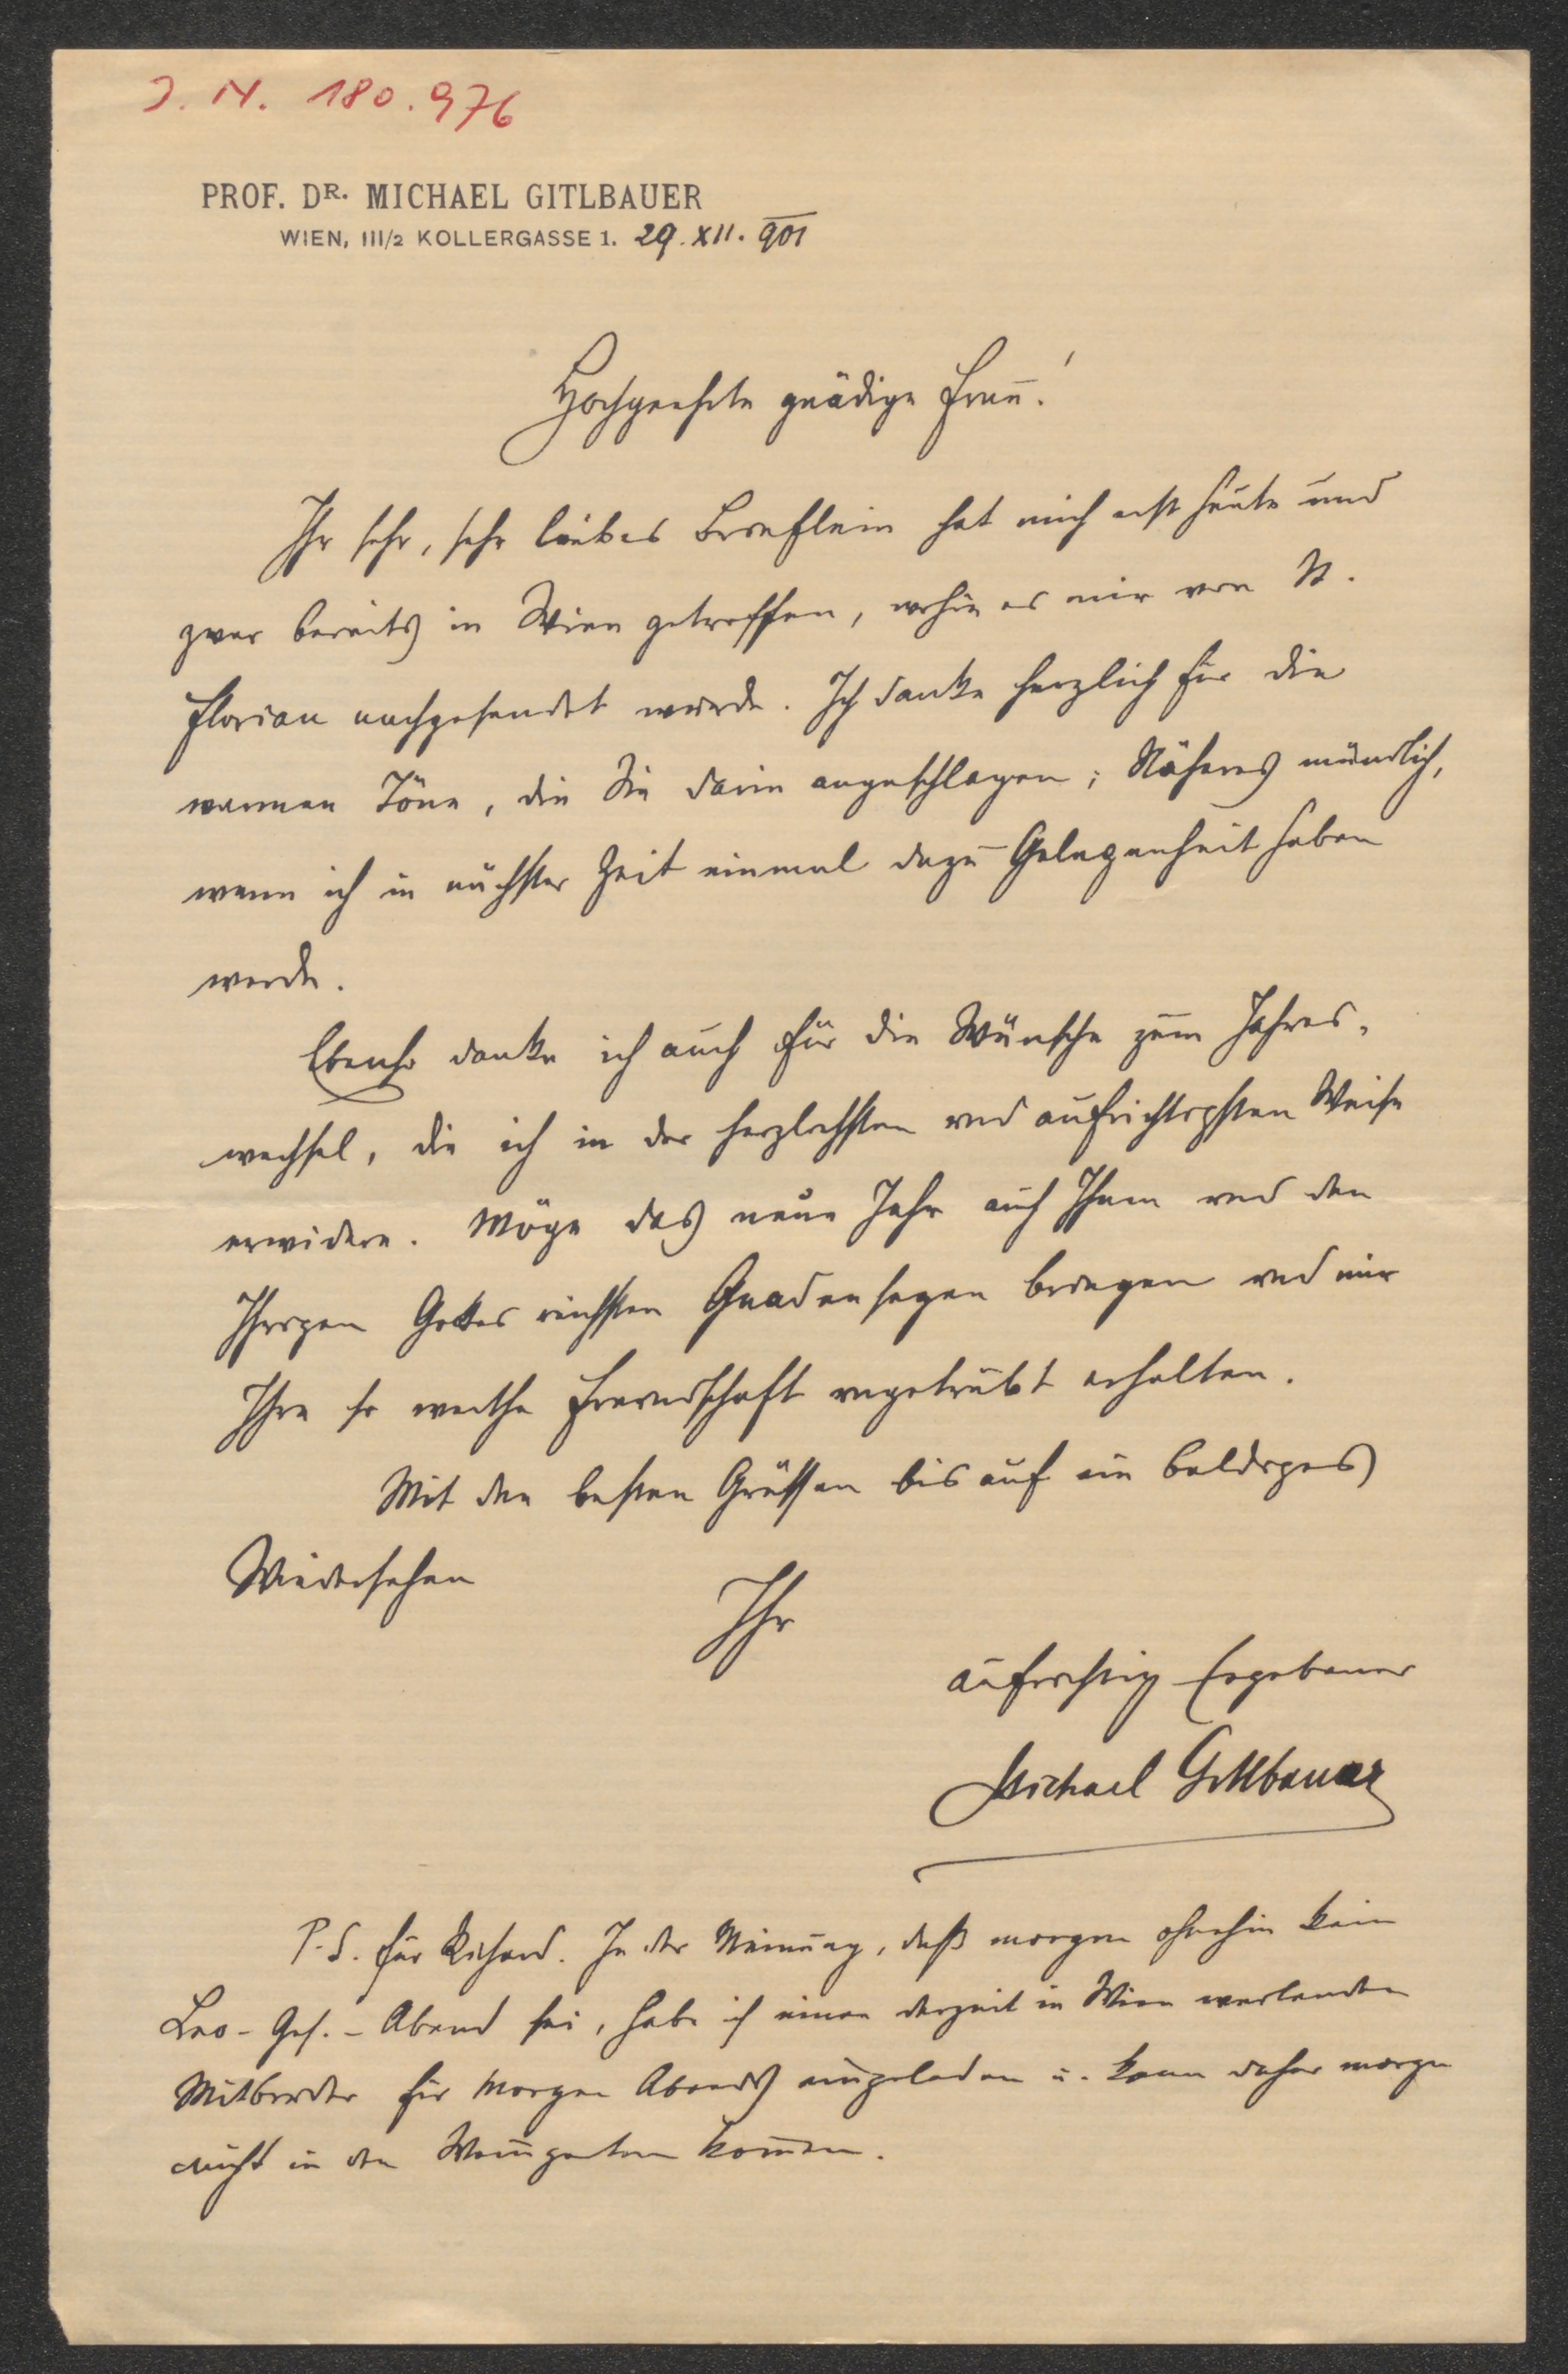 J. N. 180.976
PROF. DR. MICHAEL GITLBAUER
WIEN, III/2 KOLLERGASSE 1. 29. XII. 901
Hochgeehrte gnädige Frau!
Ihr sehr, sehr liebes Brieflein hat mich erst heute und
zwar bereits in Wien getroffen, wohin es mir von St.
Florian nachgesendet wurde. Ich danke herzlich für die
warmen Töne, die Sie darin angeschlagen; Näheres mündlich,
wenn ich in nächster Zeit einmal dazu Gelegenheit haben
werde.
Ebenso danke ich auch für die Wünsche zum Jahres-
wechsel, die ich in der herzlichsten und aufrichtigsten Weise
erwidere. Möge das neue Jahr auch Ihnen und den
Ihrigen Gottes reichsten Gnadensegen bringen und mir
Ihre so werthe Freundschaft ungetrübt erhalten.
Mit den besten Grüssen bis auf ein baldiges
Wiedersehen
Ihr
aufrichtig Ergebener
Michael Gitlbauer
P.S. für Richard. In der Meinung, daß morgen ohnehin kein
Leo-Ges.-Abend sei, habe ich einen derzeit in Wien weilenden
Mitbruder für morgen Abends eingeladen u. kann daher morgen
nicht in den Weingarten kommen.